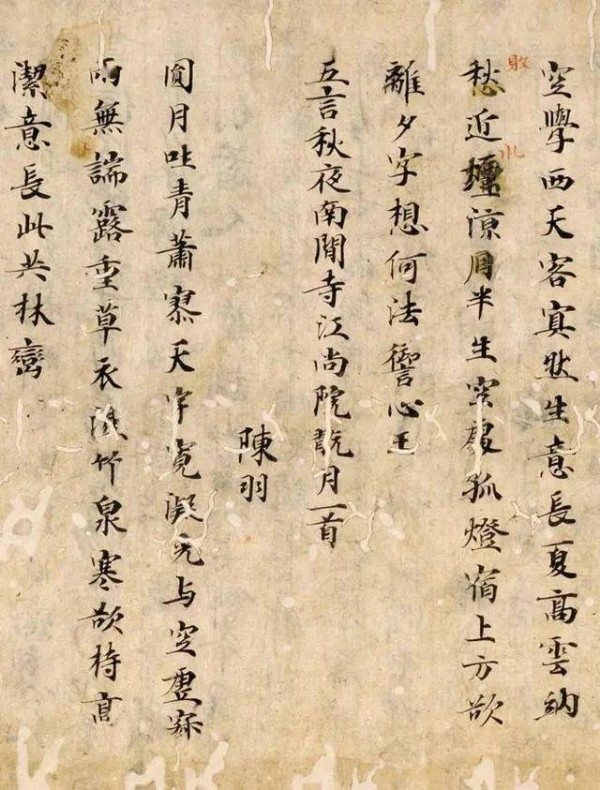 空學西天客冥然生意長夏高雲納
愁近壇涼半生空處孤燈宿上方欲
離夕字想何法心王
五言秋夜南開寺江尚院翫月一首
陳羽
圓月吐青蕭寥天宇寬凝光与空虛
雨無端露重草衣濕竹泉寒欲持高
潔意長此共林巒